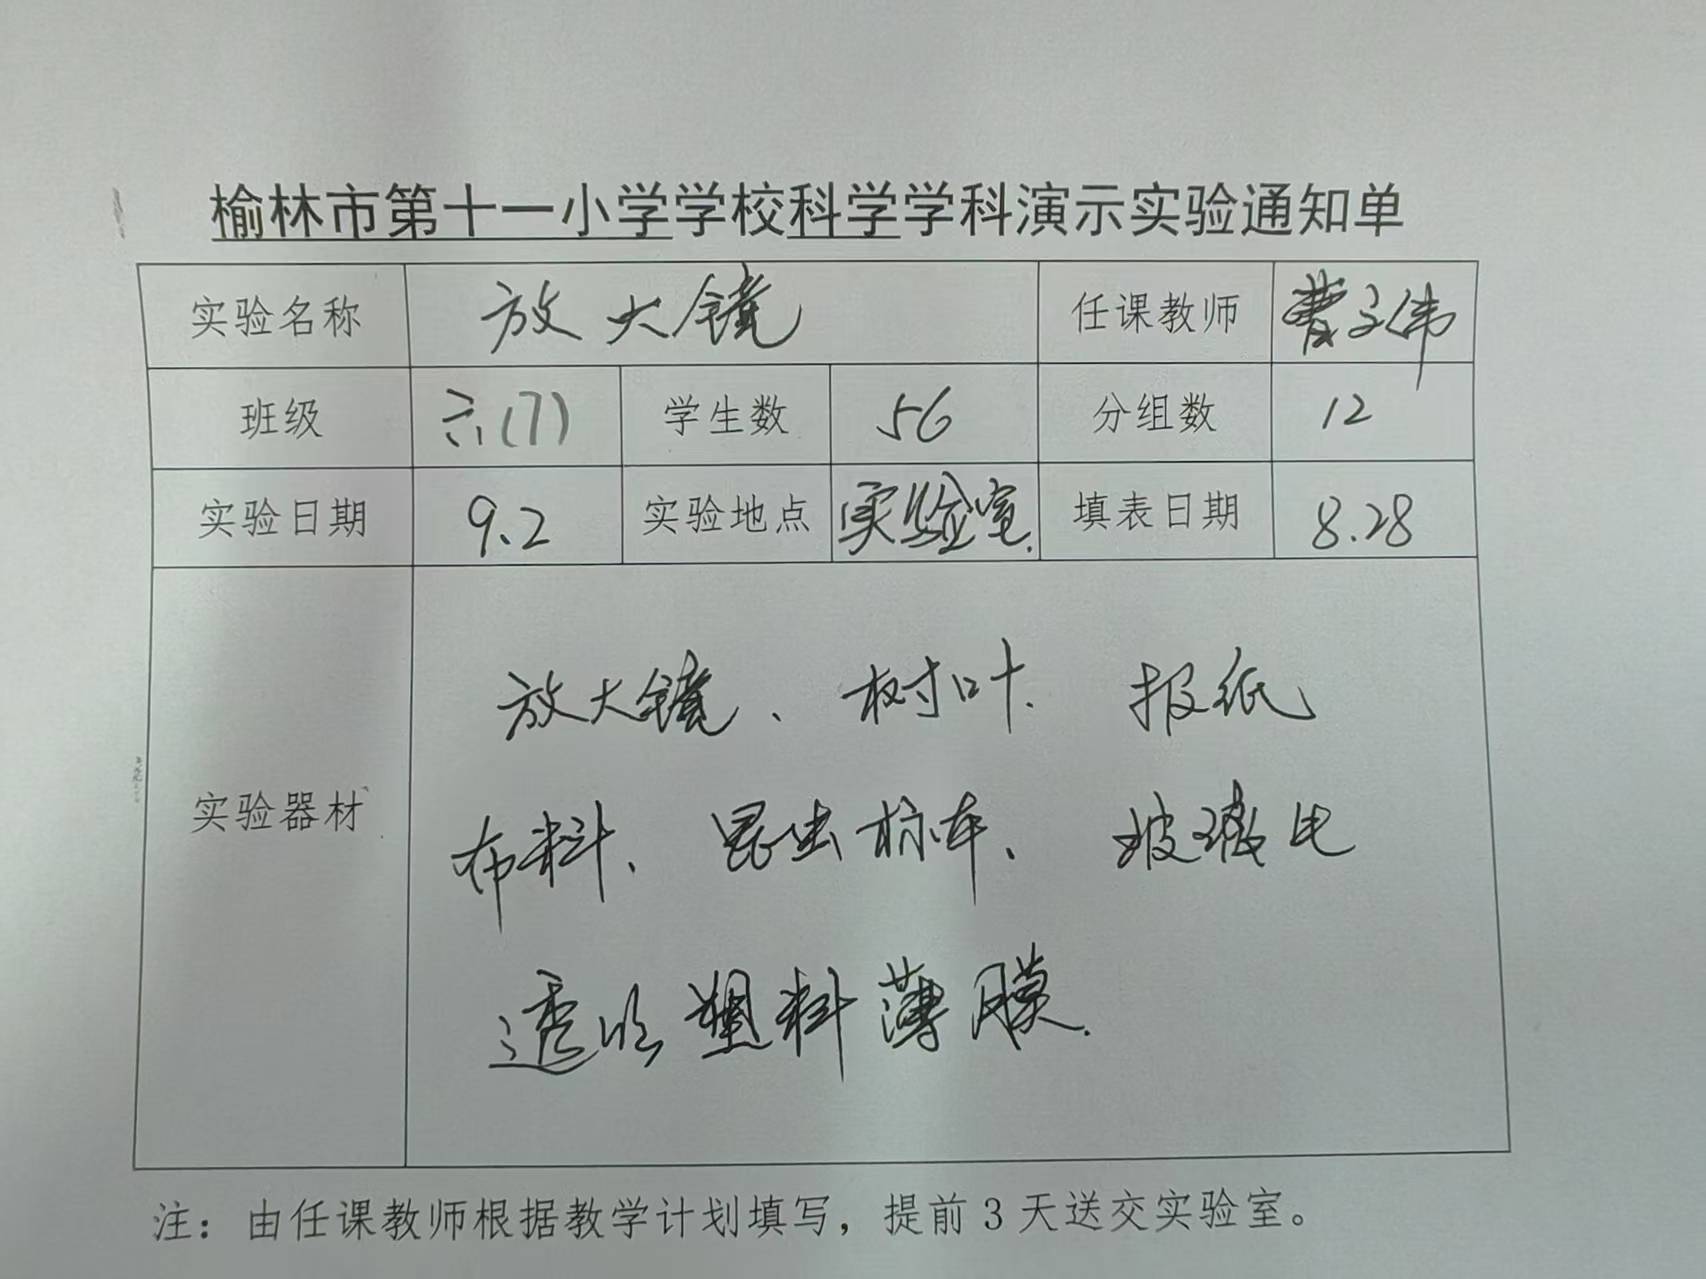 榆林市第十一小学学校科学学科演示实验通知单
实验名称 放大镜 任课教师 曹子伟
班级 六(7) 学生数 56 分组数 12
实验日期 9.2 实验地点 实验室. 填表日期 8.28
实验器材
放大镜、树叶. 报纸
布料、昆虫标本、玻璃片
透明塑料薄膜.
注：由任课教师根据教学计划填写，提前 3 天送交实验室。